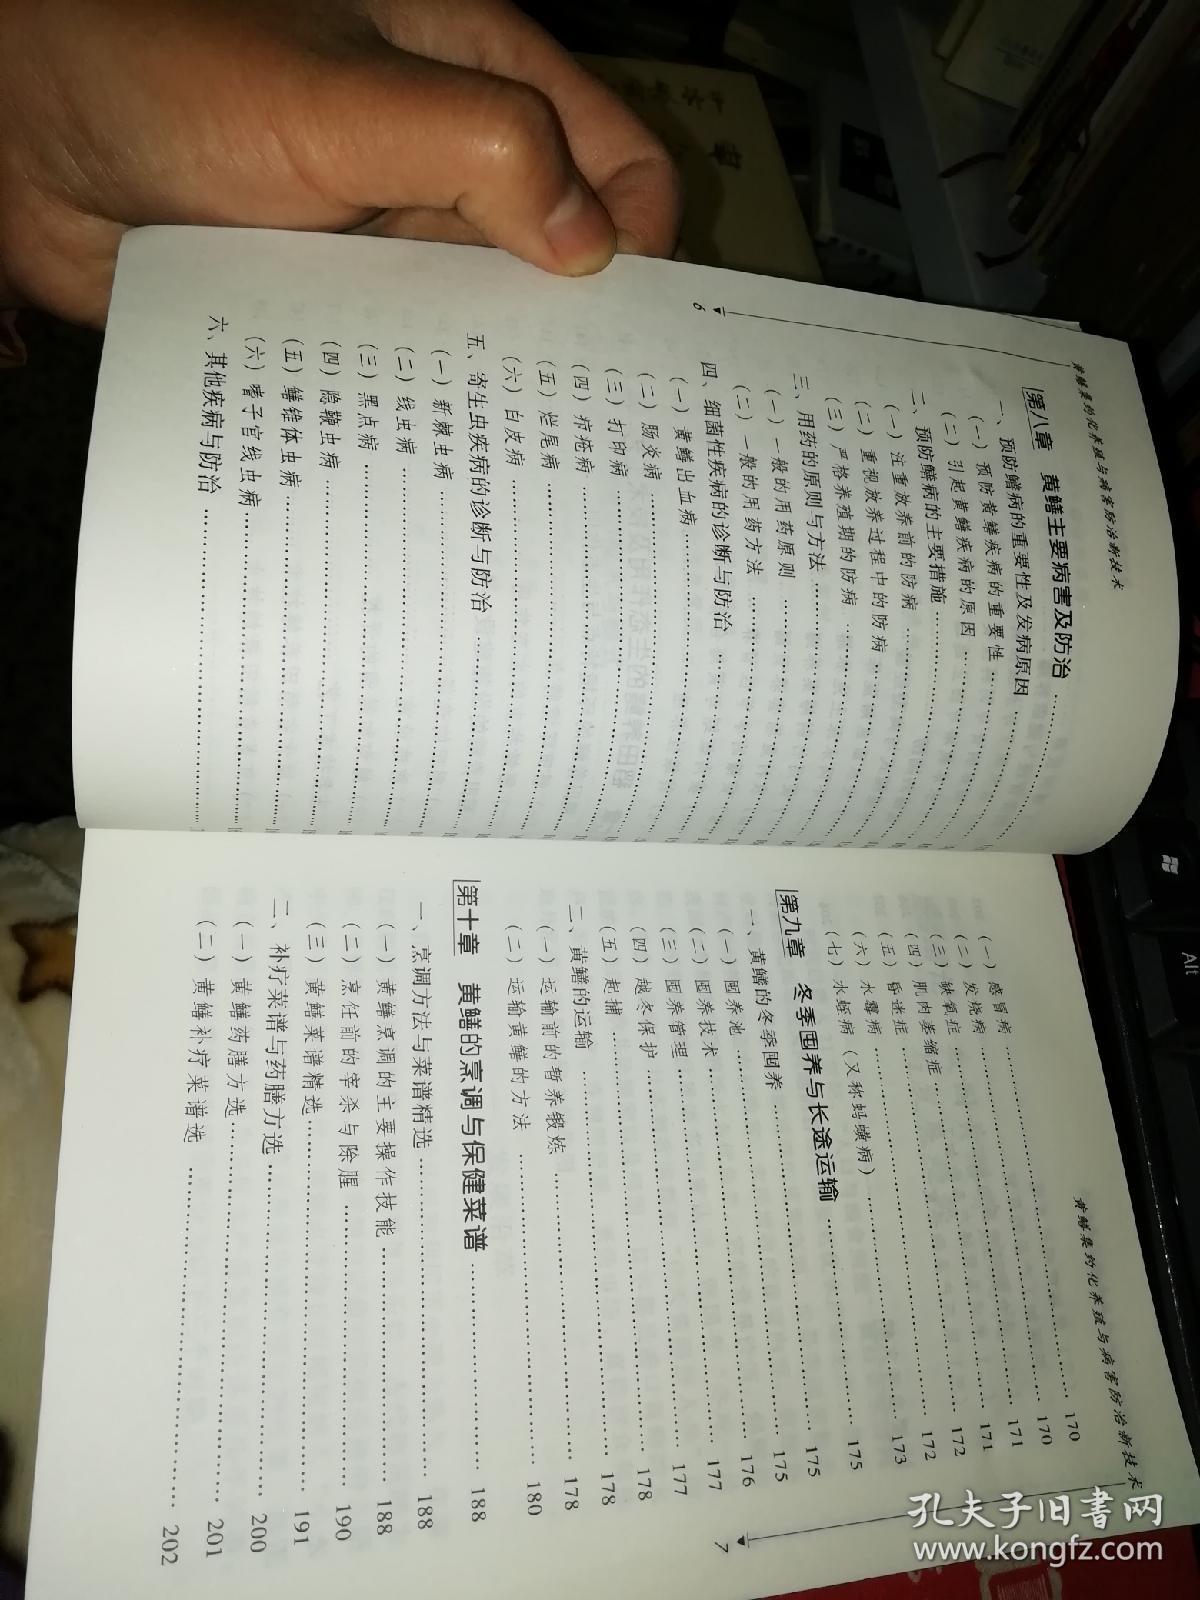 黄鳝集约化养殖与病害防治新技术
第八章 黄鳝主要病害及防治
一、预防鳝病的重要性及发病原因
(一) 预防黄鳝疾病的重要性
(二) 引起黄鳝疾病的原因
二、预防鳝病的主要措施
(一) 注重放养前的防病
(二) 重视放养过程中的防病
(三) 严格养殖期的防病
三、用药的原则与方法
(一) 一般的用药原则
(二) 一般的用药方法
四、细菌性疾病的诊断与防治
(一) 黄鳝出血病
(二) 肠炎病
(三) 打印病
(四) 疖疮病
(五) 烂尾病
(六) 白皮病
五、寄生虫疾病的诊断与防治
(一) 新棘虫病
(二) 线虫病
(三) 黑点病
(四) 隐鞭虫病
(五) 鳝锥体虫病
(六) 嗜子宫线虫病
六、其他疾病与防治
6
黄鳝集约化养殖与病害防治新技术
(一) 感冒病 170
(二) 发烧病 170
(三) 缺氧症 171
(四) 肌肉萎缩症 171
(五) 昏迷症 172
(六) 水霉病 172
(七) 水蛭病 (又称蚂蟥病) 173
第九章 冬季囤养与长途运输 175
一、黄鳝的冬季囤养 175
(一) 囤养池 175
(二) 囤养技术 176
(三) 囤养管理 177
(四) 越冬保护 177
(五) 起捕 178
二、黄鳝的运输 178
(一) 运输前的暂养锻炼 178
(二) 运输黄鳝的方法 180
第十章 黄鳝的烹调与保健菜谱 188
一、烹调方法与菜谱精选 188
(一) 黄鳝烹调的主要操作技能 188
(二) 烹饪前的宰杀与除腥 190
(三) 黄鳝菜谱精选 191
二、补疗菜谱与药膳方选 200
(一) 黄鳝药膳方选 201
(二) 黄鳝补疗菜谱选 202
7
Alt
孔夫子旧书网
www.kongfz.com